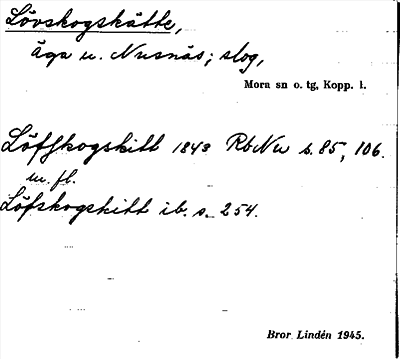 Lövskogskätte,
äga u. Nusnäs; slog,
Mora sn o. tg, Kopp. l.
Löffkogskitt 1843 RbNu s. 85, 106.
m. fl.
Löfskogskitt ib. s. 254.
Bror Lindén 1945.